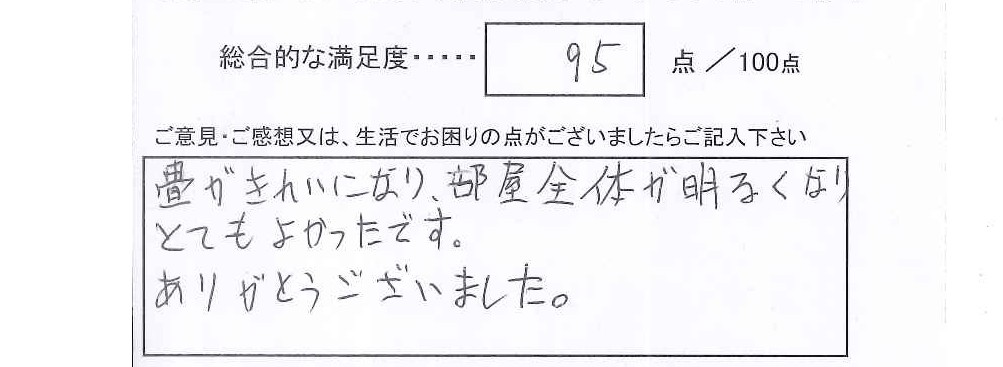 総合的な満足度・・・・・ 95 点 ／100点
ご意見・ご感想又は、生活でお困りの点がございましたらご記入下さい
畳がきれいになり、部屋全体が明るくなり
とてもよかったです。
ありがとうございました。